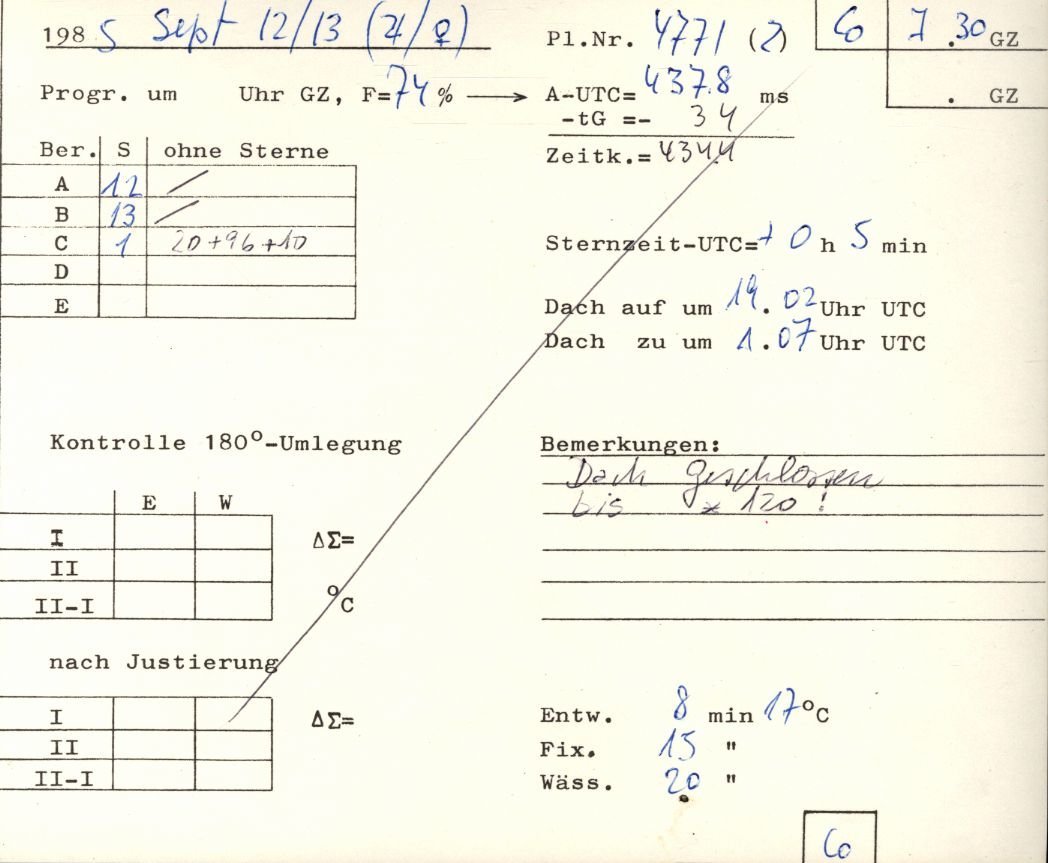 1985 Sept 12/13 (♃/♀) Pl.Nr. 4771 (2) Co 7.30 GZ
Progr. um Uhr GZ, F=74% → A-UTC=437.8 ms . GZ
-tG =- 34
Zeitk.=4344
Ber. S ohne Sterne
A 12 /
B 13 /
C 1 20+96+10
D
E
Sternzeit-UTC=+0 h 5 min
Dach auf um 19.02 Uhr UTC
Dach zu um 1.07 Uhr UTC
Kontrolle 180°-Umlegung
E W
I ΔΣ=
II
II-I °C
Bemerkungen:
Dach geschlossen
bis * 120 !
nach Justierung
I ΔΣ=
II
II-I
Entw. 8 min 17°C
Fix. 15 "
Wäss. 20 "
Co